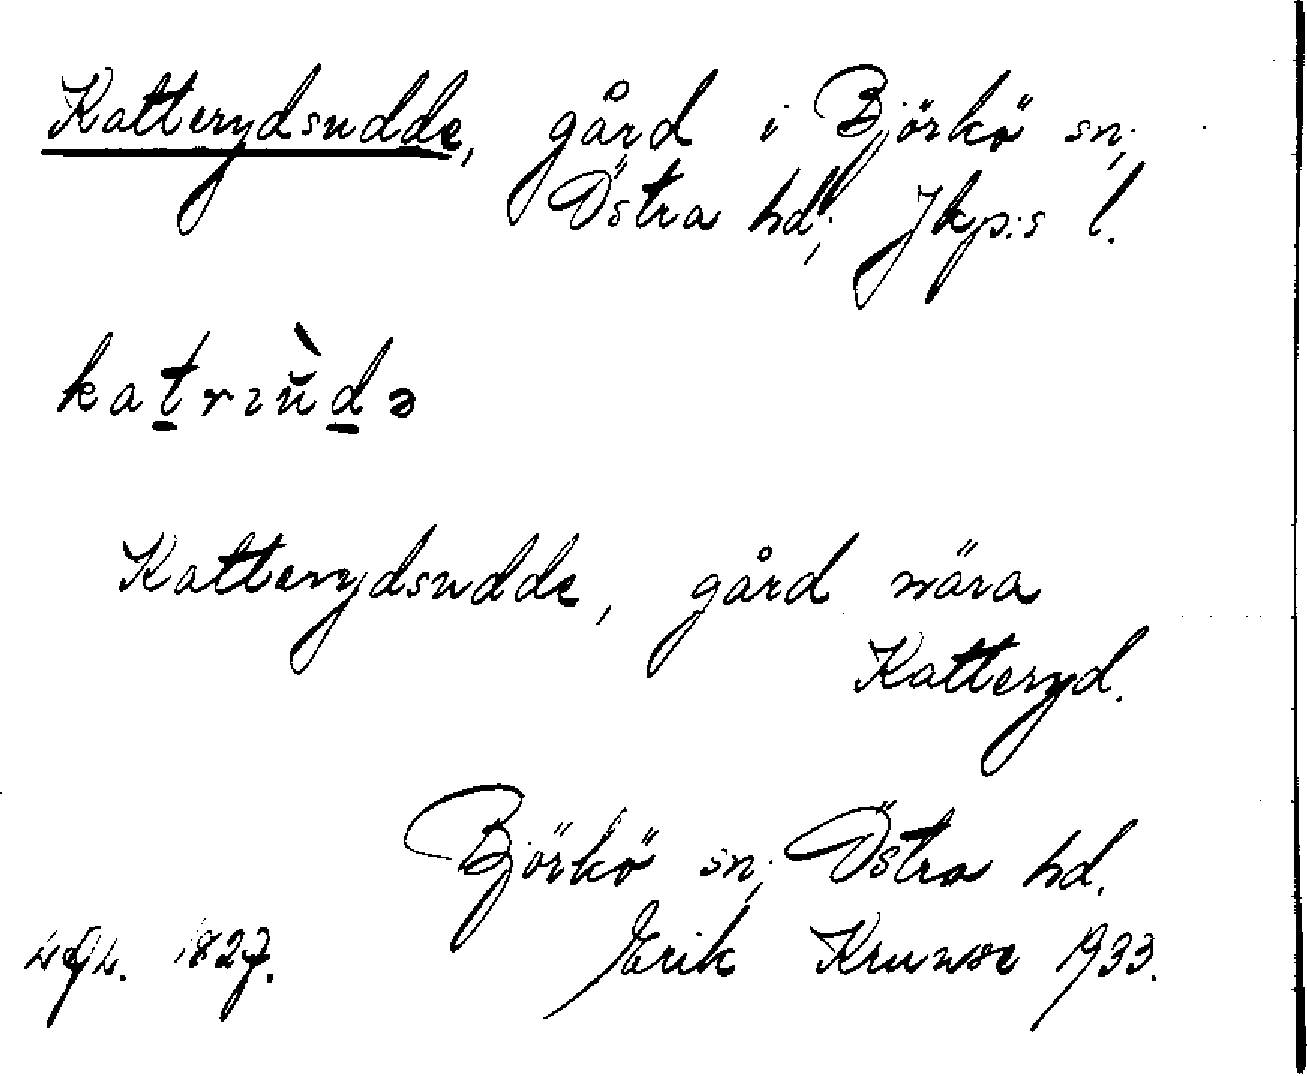 Katterydsudde, gård i Björkö sn;
Östra hd; Jkp:s l.
katrıùdə
Katterydsudde, gård nära
Katteryd.
Björkö sn; Östra hd.
1827. Erik 1933.